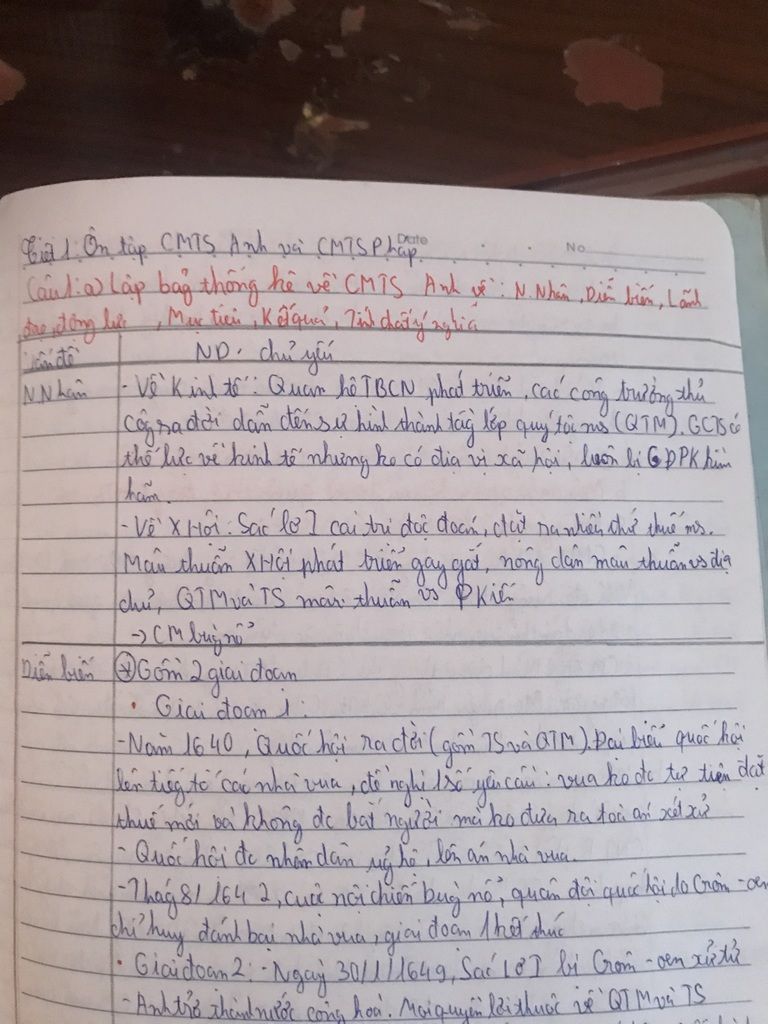 Tiết 1: Ôn tập CMTS Anh và CMTS Pháp
Date No
Câu 1: a) Lập bảg thống kê về CMTS Anh về: N.Nhân, Diễn biến, Lãnh
đạo, động lực, Mục tiêu, Kết quả, Tính chất ý nghĩa
Vấn đề ND. chủ yếu
N Nhân - Về Kinh tế: Quan hệ TBCN phát triển, các công trường thủ
côg ra đời dẫn đến sự hình thành tầg lớp quý tộc ms (QTM). GCTS có
thế lực về kinh tế nhưng ko có địa vị xã hội, luôn bị GĐPK kìm
hãm.
- Về X Hội: Sác lơ I cai trị độc đoán, đặt ra nhiều thứ thuế ms.
Mâu thuẫn XHội phát triển gay gắt, nông dân mâu thuẫn vs địa
chủ, QTM và TS mâu thuẫn vs P Kiến
→ CM bùg nổ
Diễn biến Gồm 2 giai đoạn
• Giai đoạn 1:
- Năm 1640, Quốc hội ra đời (gồm TS và QTM). Đại biểu quốc hội
lên tiếg tố cáo nhà vua, đề nghị 1 số yêu cầu: vua ko đc tự tiện đặt
thuế mới và không đc bắt người mà ko đưa ra toà án xét xử
- Quốc hội đc nhân dân ủg hộ, lên án nhà vua.
- Thág 8/1642, cuộc nội chiến bùg nổ, quân đội quốc hội do Crôm-oen
chỉ huy đánh bại nhà vua, giai đoạn 1 kết thúc
• Giai đoạn 2: - Ngày 30/1/1649, Sác lơ I bị Crôm-oen xử tử
- Anh trở thành nước cộng hoà. Mọi quyền lợi thuộc về QTM và TS